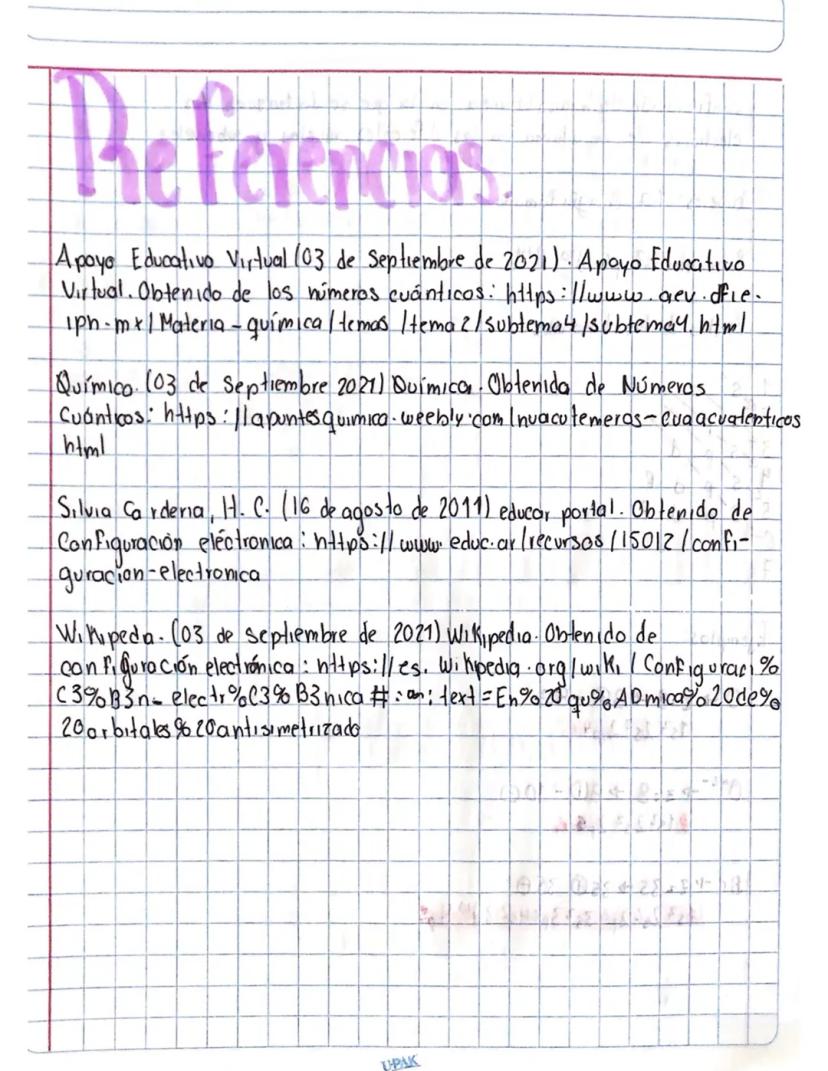 Referencias.
Apoyo Educativo Virtual (03 de Septiembre de 2021). Apoyo Educativo
Virtual. Obtenido de los números cuánticos: https://www.aev.dfie.
ipn.mx/Materia-química/temas/tema2/subtema4/subtema4.html
Químico. (03 de Septiembre 2021) Química. Obtenida de Números
Cuánticos: https://apuntesquimica.weebly.com/nuacutemeros-cuaacutenticos
html
Silvia Cardena, H. C. (16 de agosto de 2011) educar portal. Obtenido de
Configuración eléctronica: https://www.educ.ar/recursos/15012/confi-
guracion-electronica
Wikipeda. (03 de septiembre de 2021) Wikipedia. Obtenido de
configuración electrónica: https://es.wikipedia.org/wiki/Configuraci%
C3%B3n_electr%C3%B3nica#: text=En%20qu%ADmica%20de%
20orbitales%20antisimetrizado
U-PAK